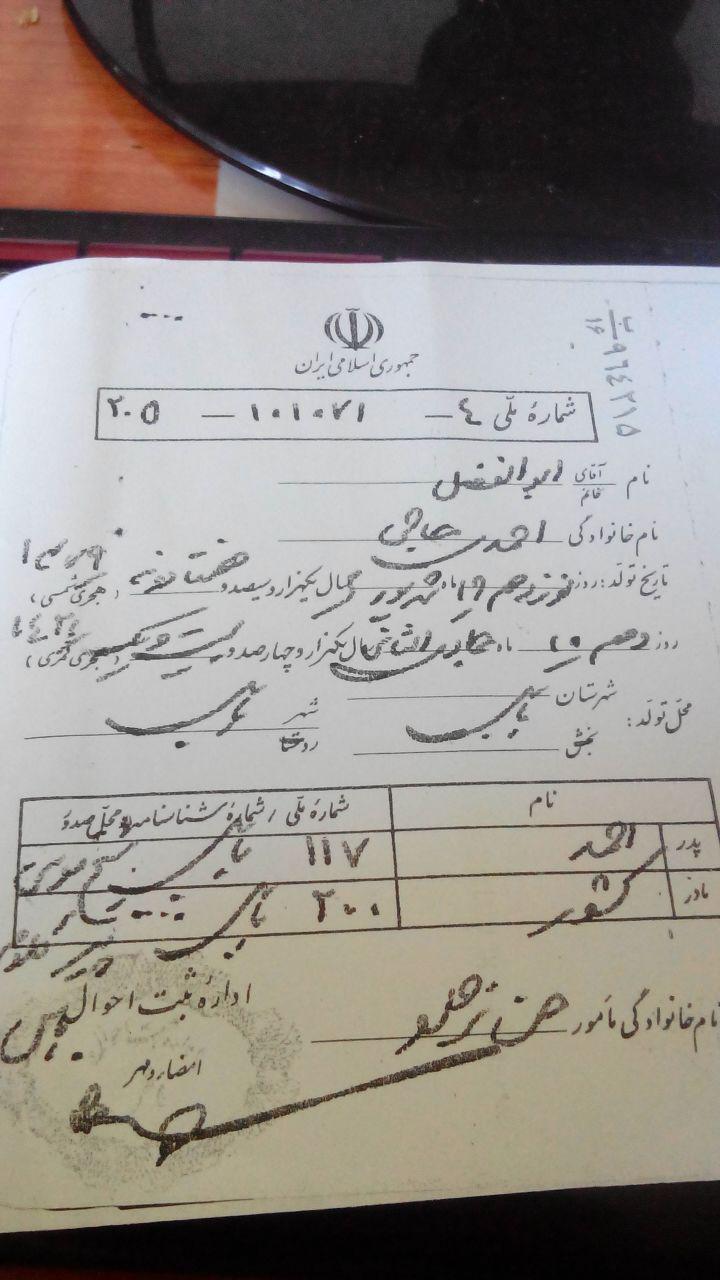 جمهوری اسلامی ایران
شمارهٔ ملّی ٤ — ۱۰۱۰۷۱ — ۲۰۵
ب/۱۶ ۹٦٤۲۱۵
نام آقای / خانم ابوالفضل
نام خانوادگی احمدی حاجی
تاریخ تولد: روز نوزدهم ۱۹ ماه شهریور سال یکهزار و سیصد و هفتاد و نه ۱۳۷۹ (هجری شمسی)
روز دهم ۱۰ ماه جمادی الثانی سال یکهزار و چهار صد و بیست و یک ۱٤۲۱ (هجری قمری)
محل تولد: شهرستان بابل شهر بابل
بخش روستا
نام شمارهٔ ملّی / شمارهٔ شناسنامه و محل صدور
پدر احمد ۱۱۷ بابل
مادر کشور ۲۰۰ بابل
نام خانوادگی مأمور ادارهٔ ثبت احوال بابل
امضاء و مهر